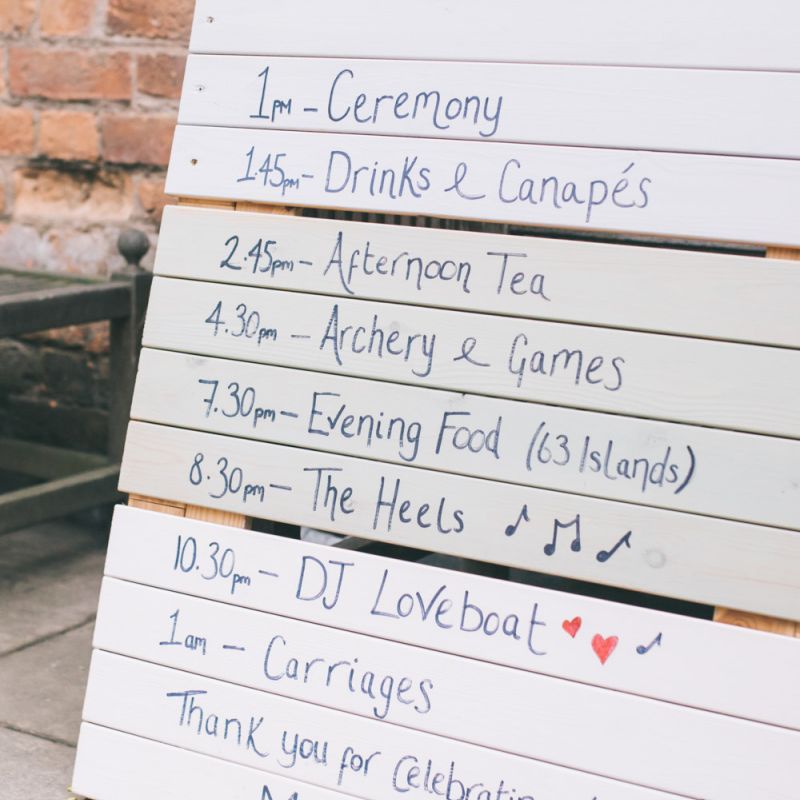 1pm - Ceremony
1.45pm - Drinks & Canapés
2.45pm - Afternoon Tea
4.30pm - Archery & Games
7.30pm - Evening Food (63 Islands)
8.30pm - The Heels
10.30pm - DJ Loveboat
1am - Carriages
Thank you for